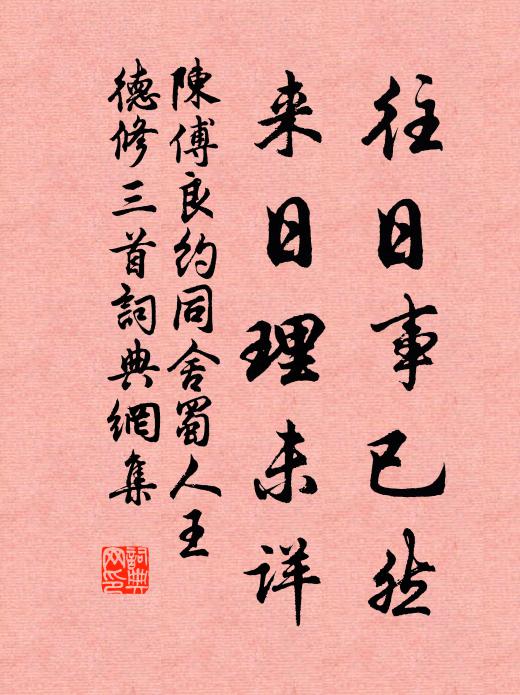 往日事已然
来日理未详
陳傅良約同舍蜀人王
德修三首詞典網集
詞典网印